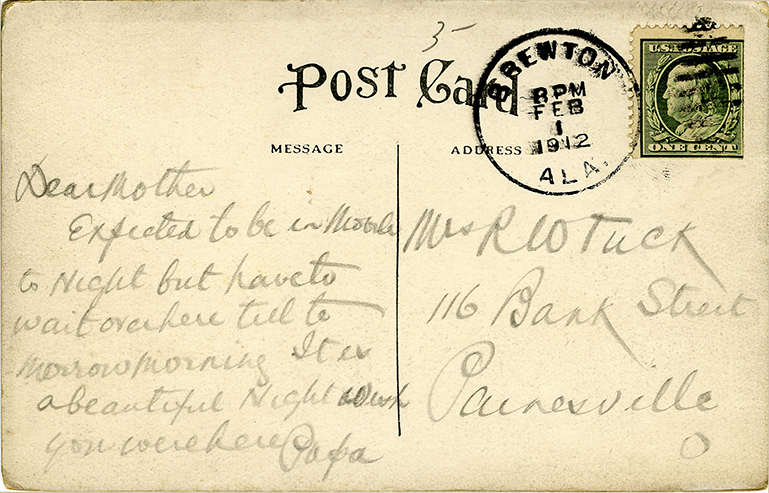 5-
Post Card
BREWTON
8 PM
FEB
1
1912
ALA.
U.S. POSTAGE
ONE CENT
MESSAGE
ADDRESS
Dear Mother
Expected to be in Mobile
to Night but have to
wait over here till to
morrow morning It is
a beautiful Night Wish
you were here Papa
Mrs R W Tuck
116 Bank Street
Painesville
O